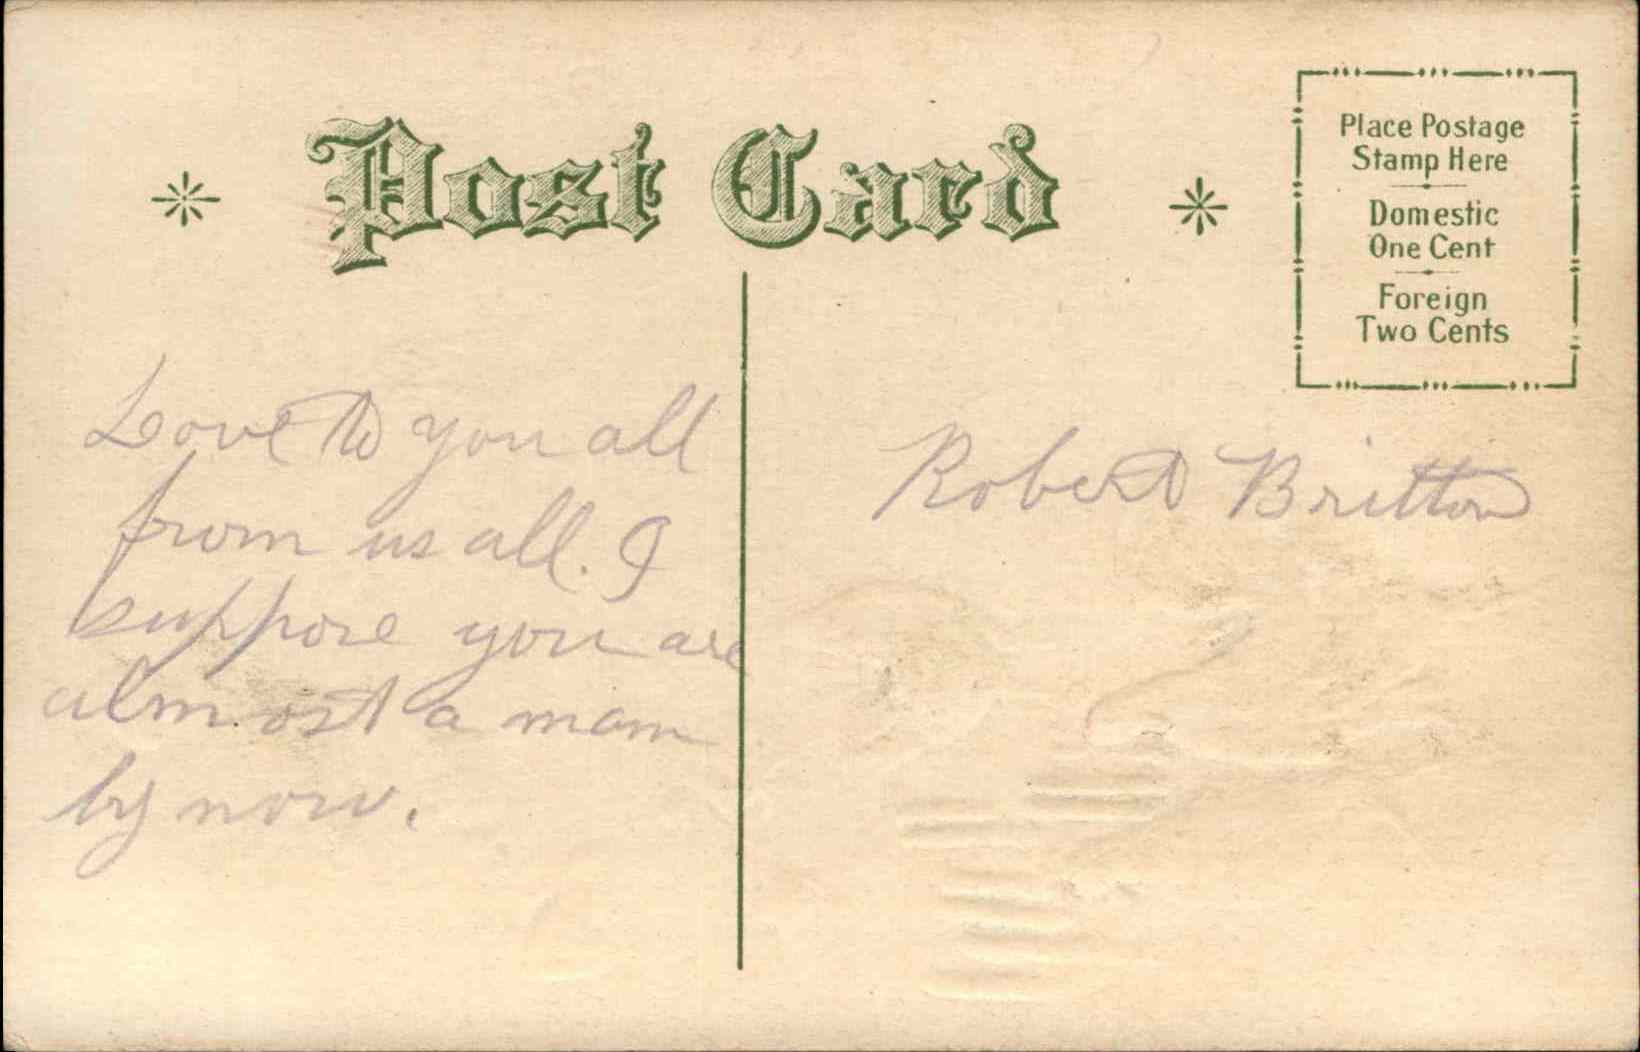 Post Card
Place Postage
Stamp Here
Domestic
One Cent
Foreign
Two Cents
Love to you all
from us all. I
suppose you are
almost a man
by now.
Robert Britton